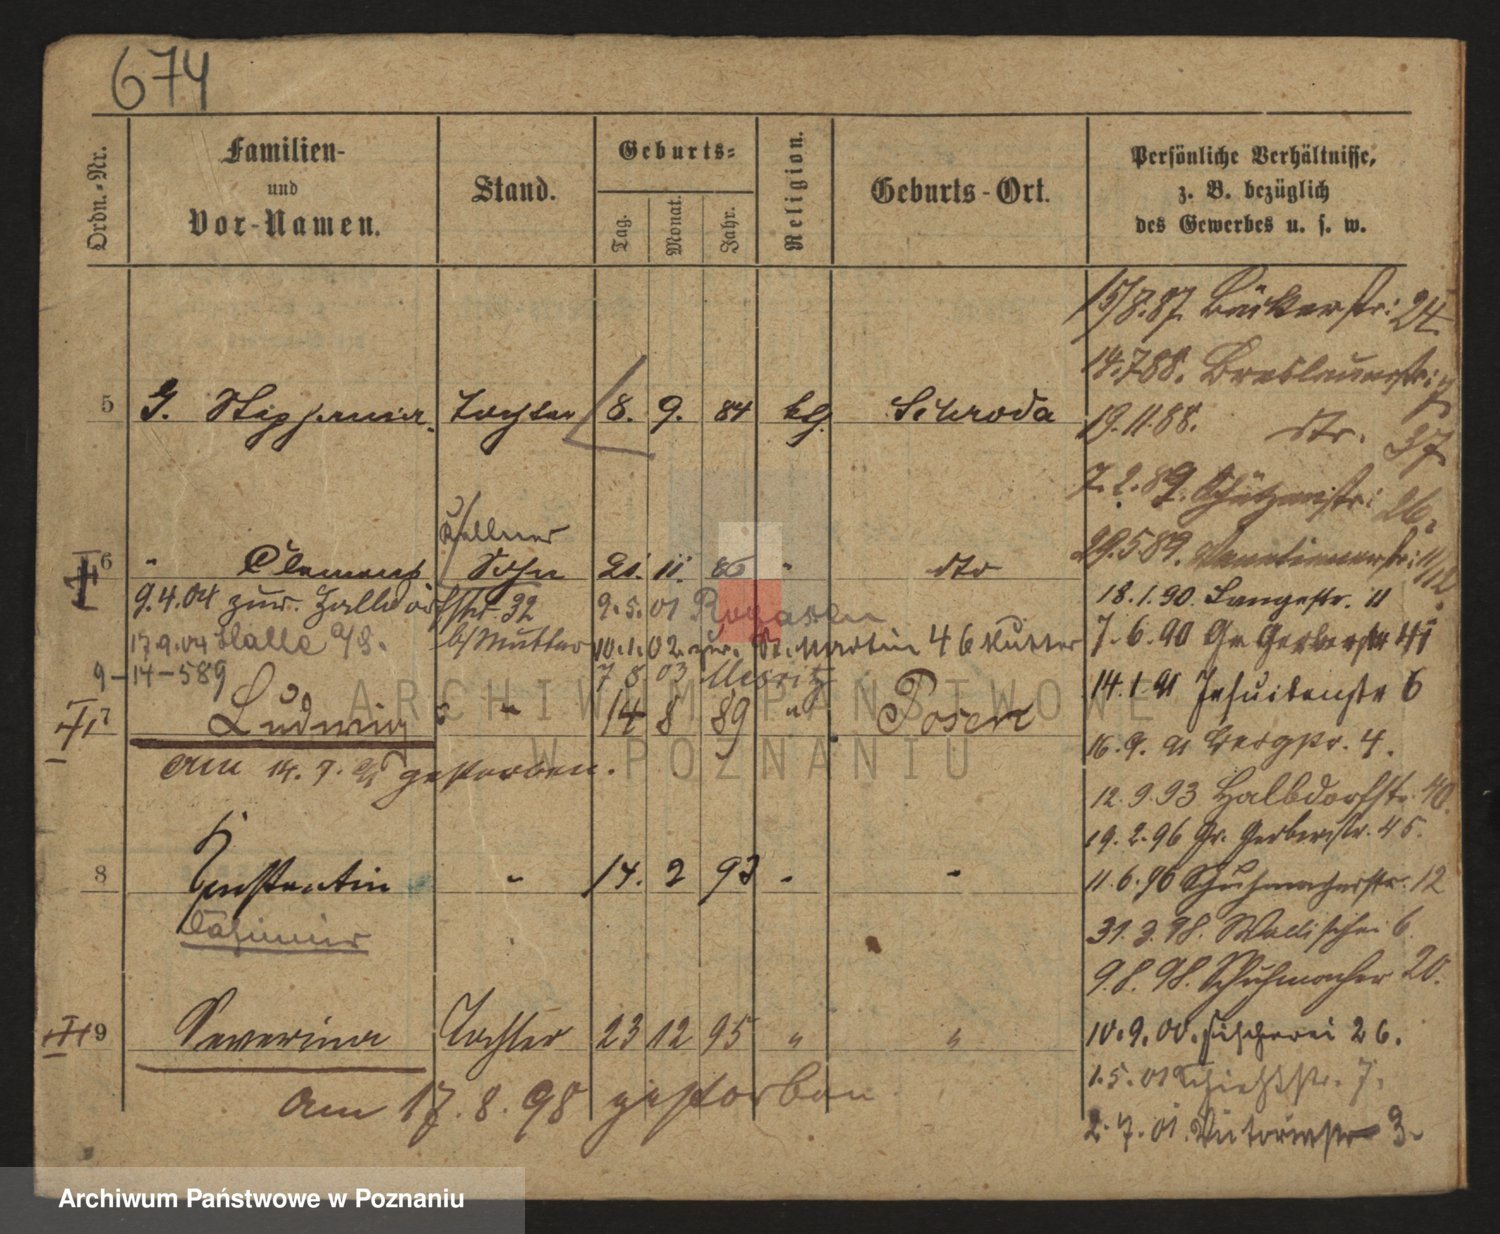 674
Ordn.-Nr.
Familien-
und
Vor-Namen.
Stand.
Geburts-
Tag.
Monat.
Jahr.
Religion.
Geburts-Ort.
Persönliche Verhältnisse,
z. B. bezüglich
des Gewerbes u. s. w.
15/8.87. Bäckerstr: 24.
14.7 88. Breslauerstr:
5 Tochter 8. 9. 84 Schroda
19.11.88. dto. 37
7.2.89. Schützenstr: 26.
Kellner
29.5 89. Venetianerstr:
6 " Clemens Sohn 21. 11. 86 " dto
18.1.90. Langestr. 11
9.4.04 zur. Halbdorfstr. 32 9.5.01 Rogasen
17.9.04 Halle a/S. b/Mutter 10.1.02 zur. St. Martin 46 Mutter
7.6.90 Gr Gerberstr 41
9-14-589 7 8 03 Meseritz
14.1.91 Jesuitenstr 6
7 Ludwig " 14 8 89 " Posen
16.9.91 Bergstr. 4.
am 14. 9. gestorben.
12.9 93 Halbdorfstr. 40.
19.2.96 Gr. Gerberstr. 45.
8 Constantin " 14. 2 93 " "
11.6.96 Schuhmacherstr. 12
Casimir
31.3.98. Wallischei 6
9.8.98. Schuhmacher 20.
9 Severina Tochter 23 12 95 " "
10.9.00. Fischerei 26.
1.5.01 7.
am 17.8.98 gestorben
2.7.01. Victoriastr 3.
ARCHIWUM PAŃSTWOWE
W POZNANIU
Archiwum Państwowe w Poznaniu